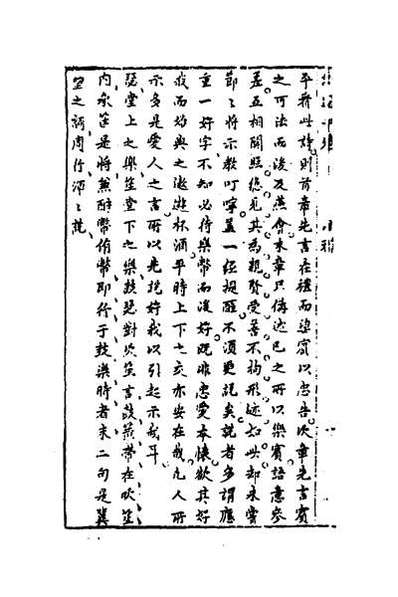 平蔣此詩則首章先言在禮而望賓以忠告次章先言賓
之可法而後及燕會末章只傳述己之所以樂賓語意參
差互相關照總見其為親賢受善不拘形迹如此却未嘗
節之將示教叮嚀蓋一經提醒不須更説矣説者多謂應
重一好字不知必待樂幣而後好既非忠愛本懷欲其好
我而始與之遨遊杯酒平時上下之交亦安在哉凡人所
示多是愛人之言所以先説好我以引起示我耳
瑟堂上之樂笙堂下之樂鼓瑟對吹笙言鼓簧帶在吹笙
内承筐是將兼酬幣侑幣即行于鼓樂時者末二句是冀
望之詞周行須之説